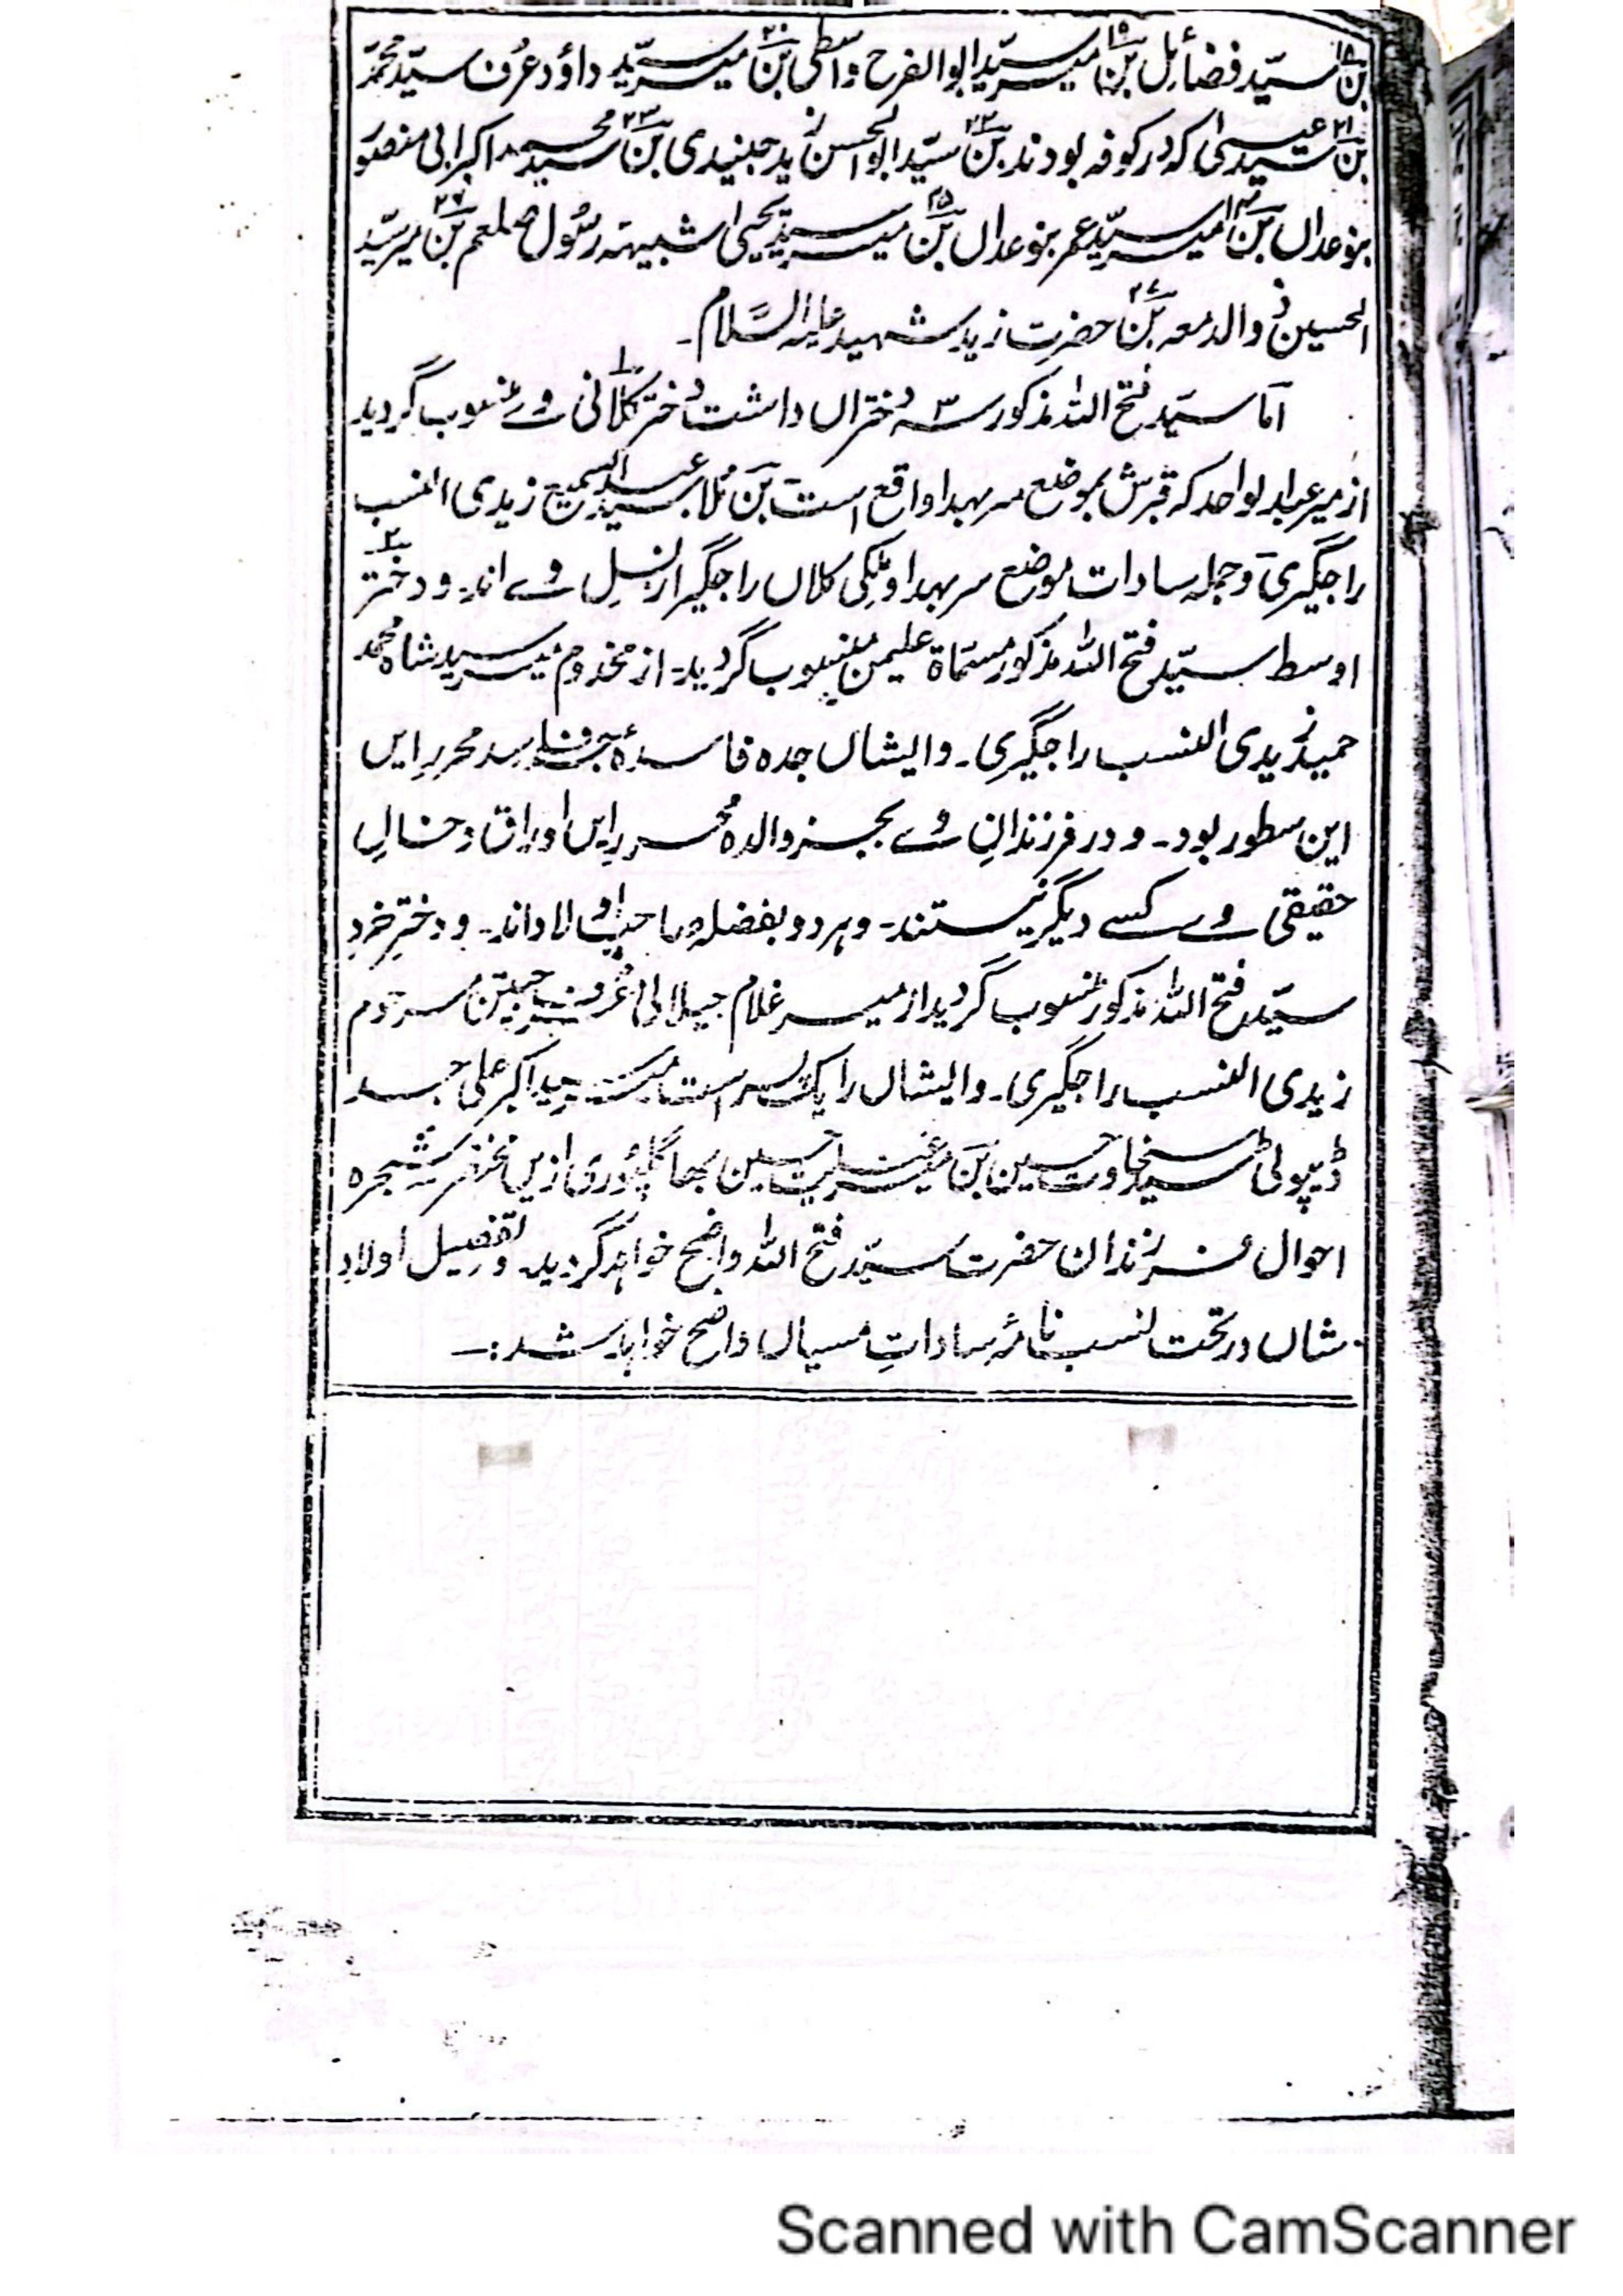 بن۱۸ سیّد فضائل بن۱۹ میر سیّد ابو الفرح واسطی بن۲۰ میر سیّد داؤد عُرف سیّد محمّد
بن۲۱ سیّد عیسیٰ که در کوفه بودند بن۲۲ سیّد ابو الحسن زید جنیدی بن۲۳ سیّد محمد اکبر ابی منصور
بنوعدال بن۲۴ امیر سیّد عمر بنوعدال بن۲۵ میر سیّد یحییٰ شبیهه رسُول صلعم بن۲۶ میر سیّد
الحسین ذوالدمعه بن۲۷ حضرت زید شہید علیہ السَّلام۔
امّا سیّد فتح اللہ مذکور سه دُختراں داشت دُختر کلانی وے منسوب گردید
از میر عبد الواحد که قبرش بموضع سربهدا واقع است بن مُلا سیّد عبد السمیع زیدی النسب
راجگیری و جمله سادات موضع سربهدا و بلکی کلاں راجگیر از نسلِ وے اند۔ و دختر
اوسط سیّد فتح اللہ مذکور مسمّاة علیمن منسوب گردید۔ از مخدوم میر سید شاه محمد
حمید زیدی النسب راجگیری۔ و ایشاں جده فاسدهٔ محرر ایں
این سطور بود۔ و در فرزندانِ وے بجز والدہ محرر ایں اوراق و خالِ
حقیقی وے کسے دیگر نیستند۔ و ہر دو بفضلہ صاحب اولاد اند۔ و دخترِ خرد
سیّد فتح اللہ مذکور منسوب گردید از میر غلام جیلانی عُرف میر مرحوم
زیدی النسب راجگیری۔ و ایشاں را یک پسر است سید اکبر علی جد
ڈیپوٹی سید سخاوت حسین بن میر عنایت حسین بھاگلپوری ازیں مختصر شجره
احوال فرزندان حضرت سیّد فتح اللہ واضح خواهد گردید۔ و تفصیل اولادِ
شاں در تحت نسب نامهٔ ساداتِ مسیاں واضح خواہد شد:۔
Scanned with CamScanner